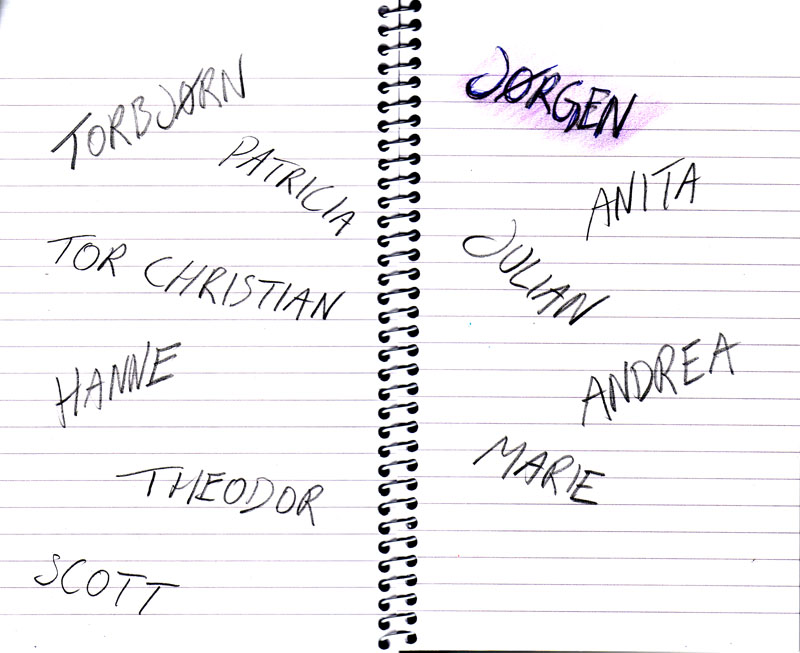 TORBJØRN
PATRICIA
TOR CHRISTIAN
HANNE
THEODOR
SCOTT
JØRGEN
ANITA
JULIAN
ANDREA
MARIE